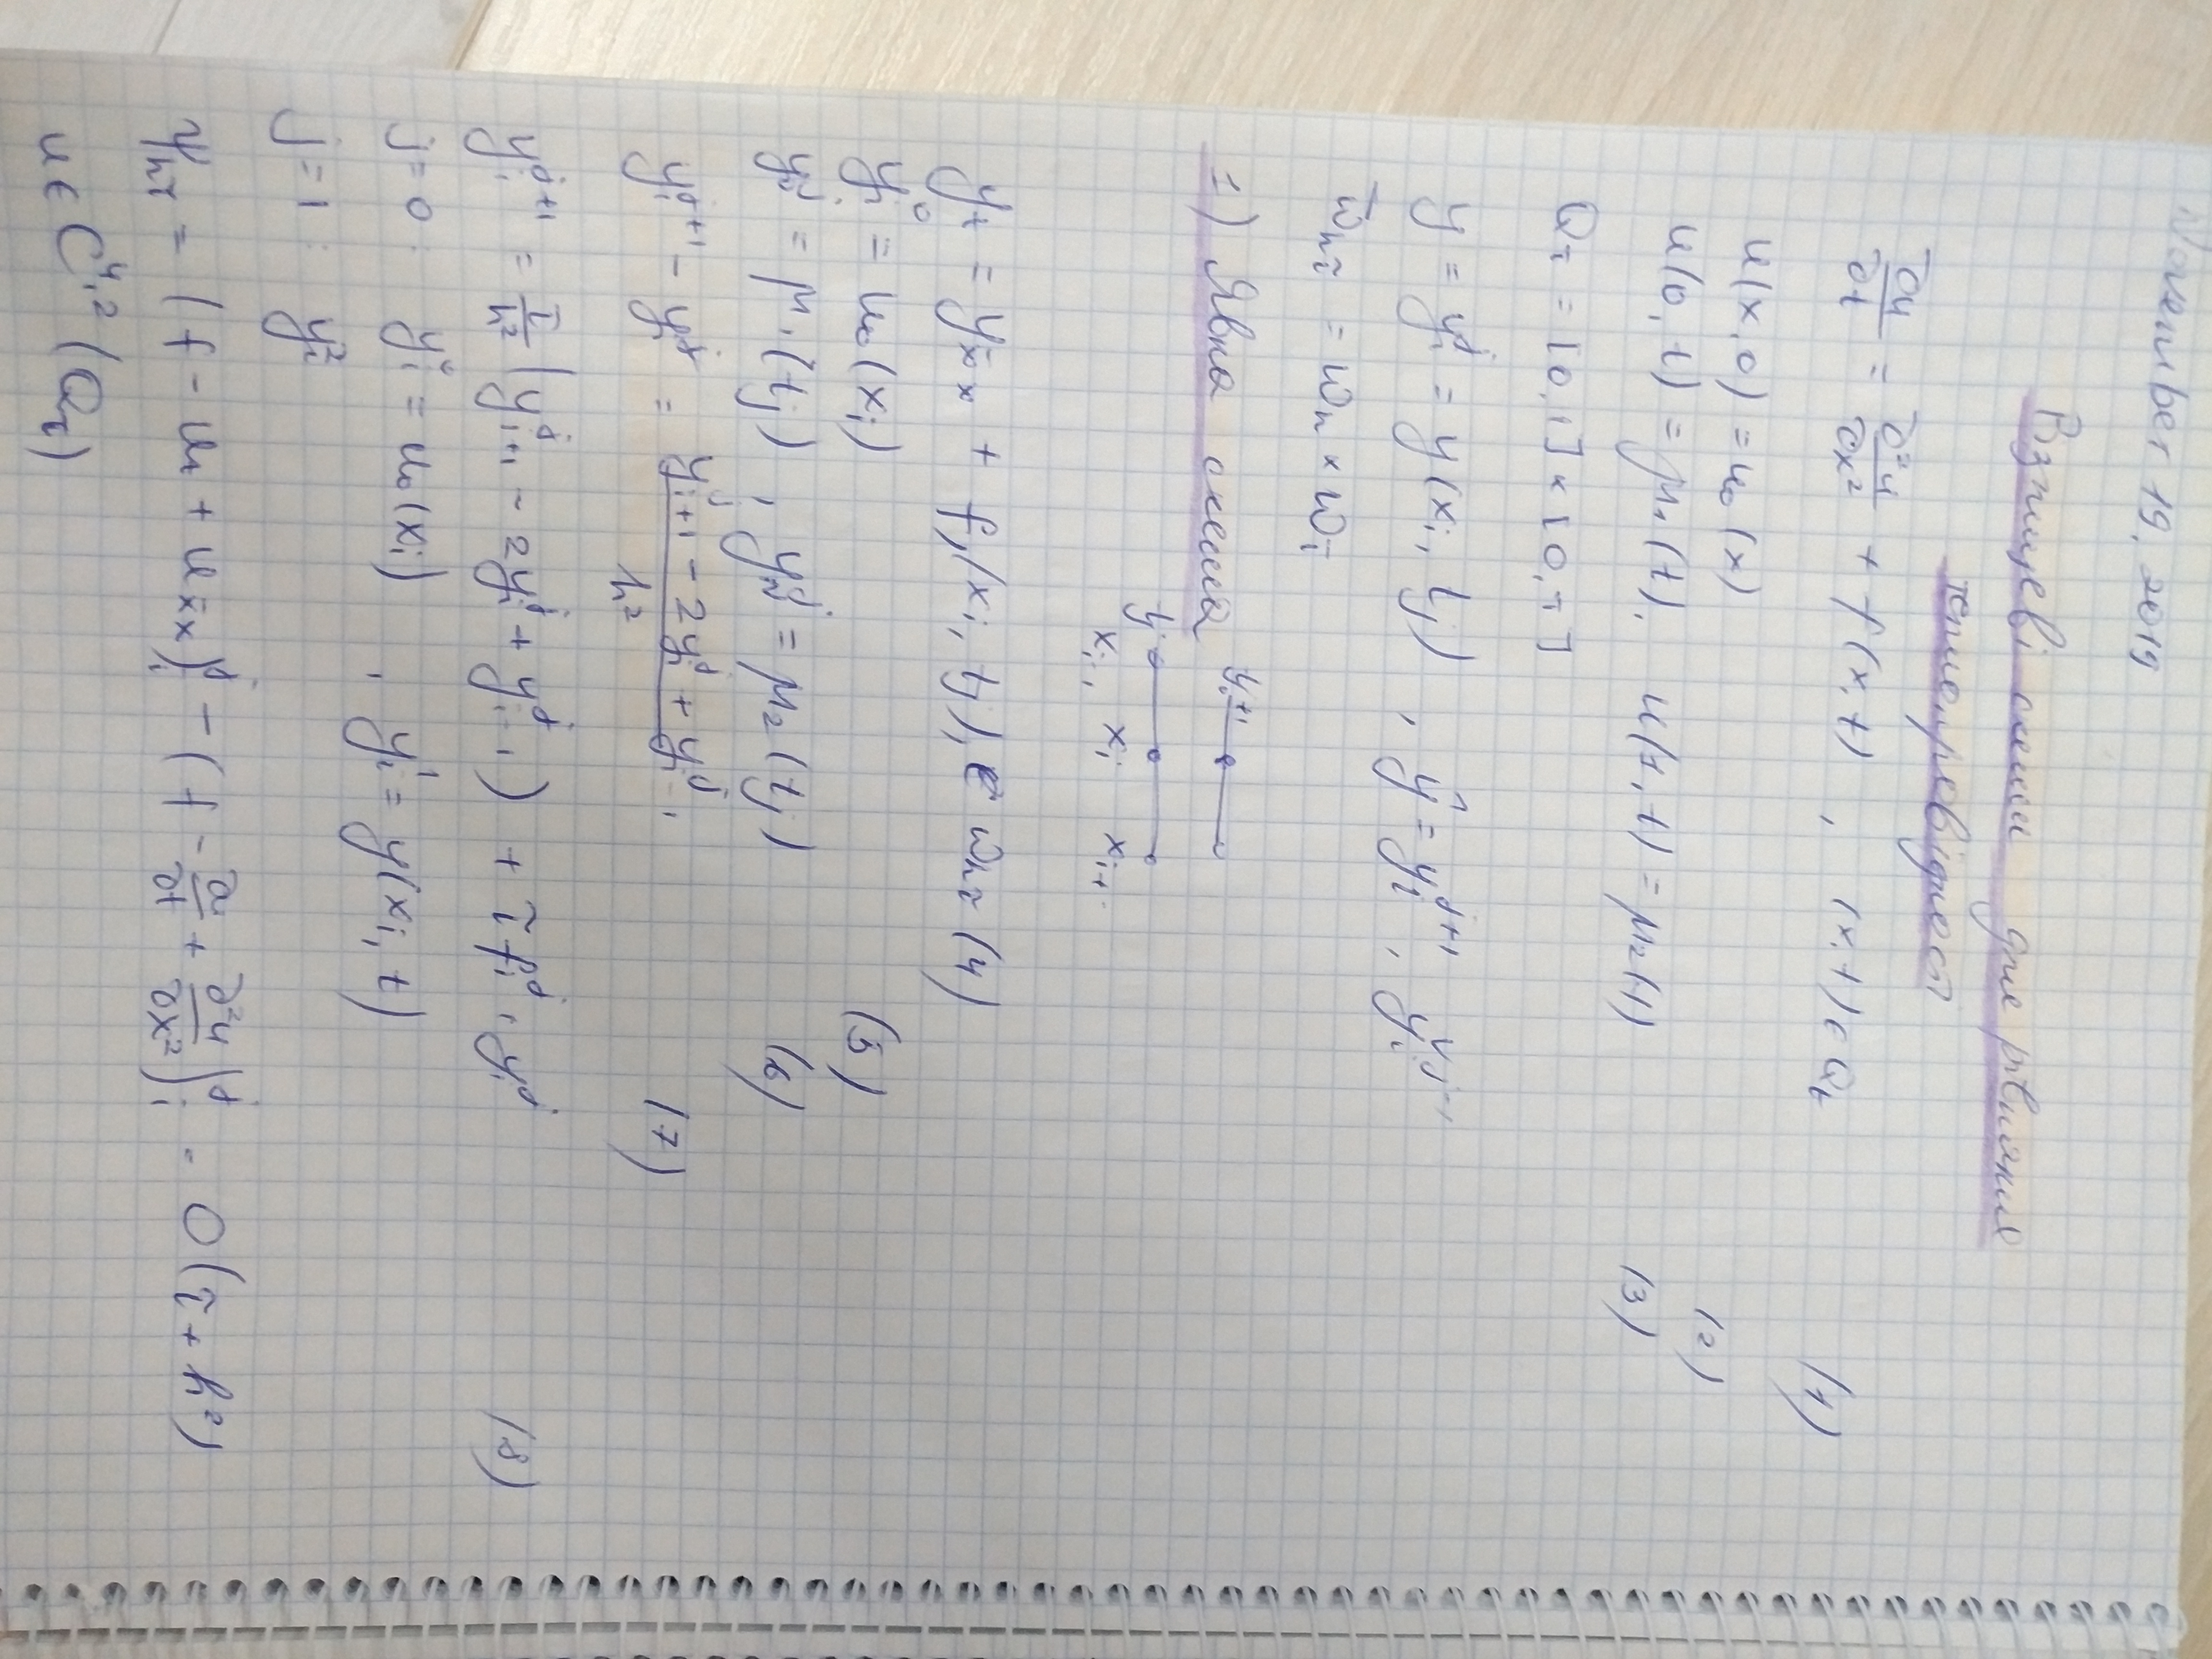 November 19, 2019
Різницеві схеми для рівняння
теплопровідності
∂u/∂t = ∂²u/∂x² + f(x, t) , (x, t) ∈ Q_T (1)
u(x, 0) = u₀(x) (2)
u(0, t) = μ₁(t), u(1, t) = μ₂(t) (3)
Q_T = [0, 1] × [0, T]
y = y_i^j = y(x_i, t_j) , ŷ = y_i^{j+1} , y̌_i^{j-1}
ω̄_{hτ} = ω_h × ω_τ
=) Явна схема
t_{j+1}
t_j
x_{i-1} x_i x_{i+1}
y_t = y_{x̄x} + f(x_i, t_j), ∈ ω_{hτ} (4)
y_i^0 = u₀(x_i) (5)
y_0^j = μ₁(t_j) , y_N^j = μ₂(t_j) (6)
y_i^{j+1} - y_i^j = (y_{i+1}^j - 2y_i^j + y_{i-1}^j) / h² (7)
y_i^{j+1} = τ/h² (y_{i+1}^j - 2y_i^j + y_{i-1}^j) + τ f_i^j + y_i^j (8)
j = 0 : y_i^0 = u₀(x_i) , y_i^1 = y(x_i, t)
j = 1 : y_i^2
ψ_{hτ} = (f - u_t + u_{x̄x})_i^j - (f - ∂u/∂t + ∂²u/∂x²)_i^j = O(τ + h²)
u ∈ C^{4,2}(Q_T)